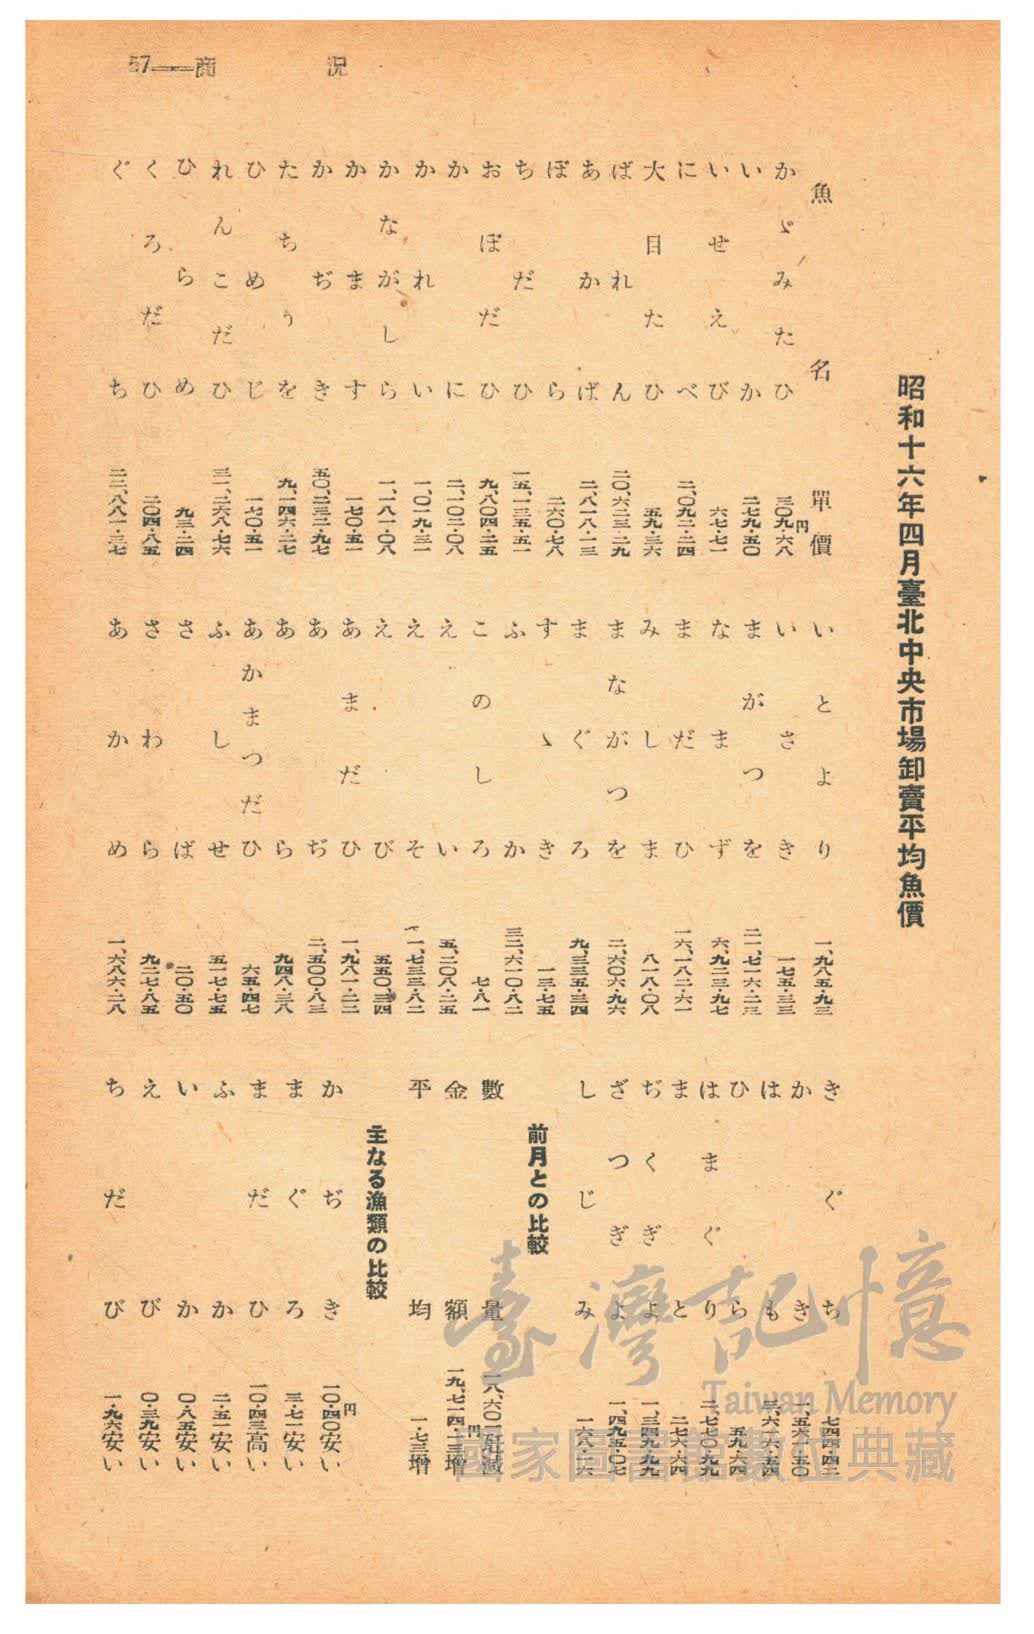 57——商況
昭和十六年四月臺北中央市場卸賣平均魚價
魚名 單價
かゞみたひ 三〇九・六八円
いか 二七九・五〇
いせえび 六七・七一
にべ 二、〇九二・二四
大目たひ 五九・三六
ばれん 二〇、六二三・二九
あかば 二、八一八・一三
ぼら 二六〇・七八
ちだひ 一五、一三五・五一
おぼだひ 九、八〇四・二五
かに 二、一〇二・〇八
かれい 一、〇一九・三一
かながしら 一、一八一・〇八
かます 一七〇・五一
かぢき 五〇、二三二・九七
たちうを 九、一四六・二七
ひめじ 一七〇・五一
れんこだひ 三一、二六八・七六
ひらめ 九三・二四
くろだひ 二〇四・八五
ぐち 二二、八八一・三七
いとより 一、九八五・九三
いさき 一七五・三三
まがつを 二一、七一六・二三
なまず 六、九二三・九七
まだひ 一六、一八二・六一
みしま 八一八・〇八
まながつを 二、六〇六・九六
まぐろ 九、三三五・三四
すゝき 一三・七五
ふか 三二、六一〇・八二
このしろ 七・八一
えい 五、二〇八・二五
えそ 一、七三三・八二
えび 五五〇・三四
あまだひ 一、九八一・二二
あぢ 二、五〇〇・八三
あら 九四八・三八
あかまつだひ 六五・四七
ふしせ 五一七・七五
さば 二〇・五〇
さわら 九二七・八五
あかめ 一、六八六・二八
きぐち 七四四・四二
かき 一、五六一・五〇
はも 三、六一六・五四
ひら 五九・六四
はまぐり 二、七七〇・九九
まと 二七六・六四
ぢくぎよ 一、三四九・九九
ざつぎよ 一、四九五・〇七
しじみ 一六八・二六
前月との比較
數量 一八、六〇二瓩減
金額 一九、七一四・一三円增
平均 一・七三增
主なる漁類の比較
かぢき 一〇・四〇円安い
まぐろ 三・七一安い
まだひ 一〇・四三高い
ふか 二・五一安い
いか 〇・八五安い
えび 〇・三九安い
ちだび 一・九六安い
臺灣記憶
Taiwan Memory
國家圖書館數位典藏